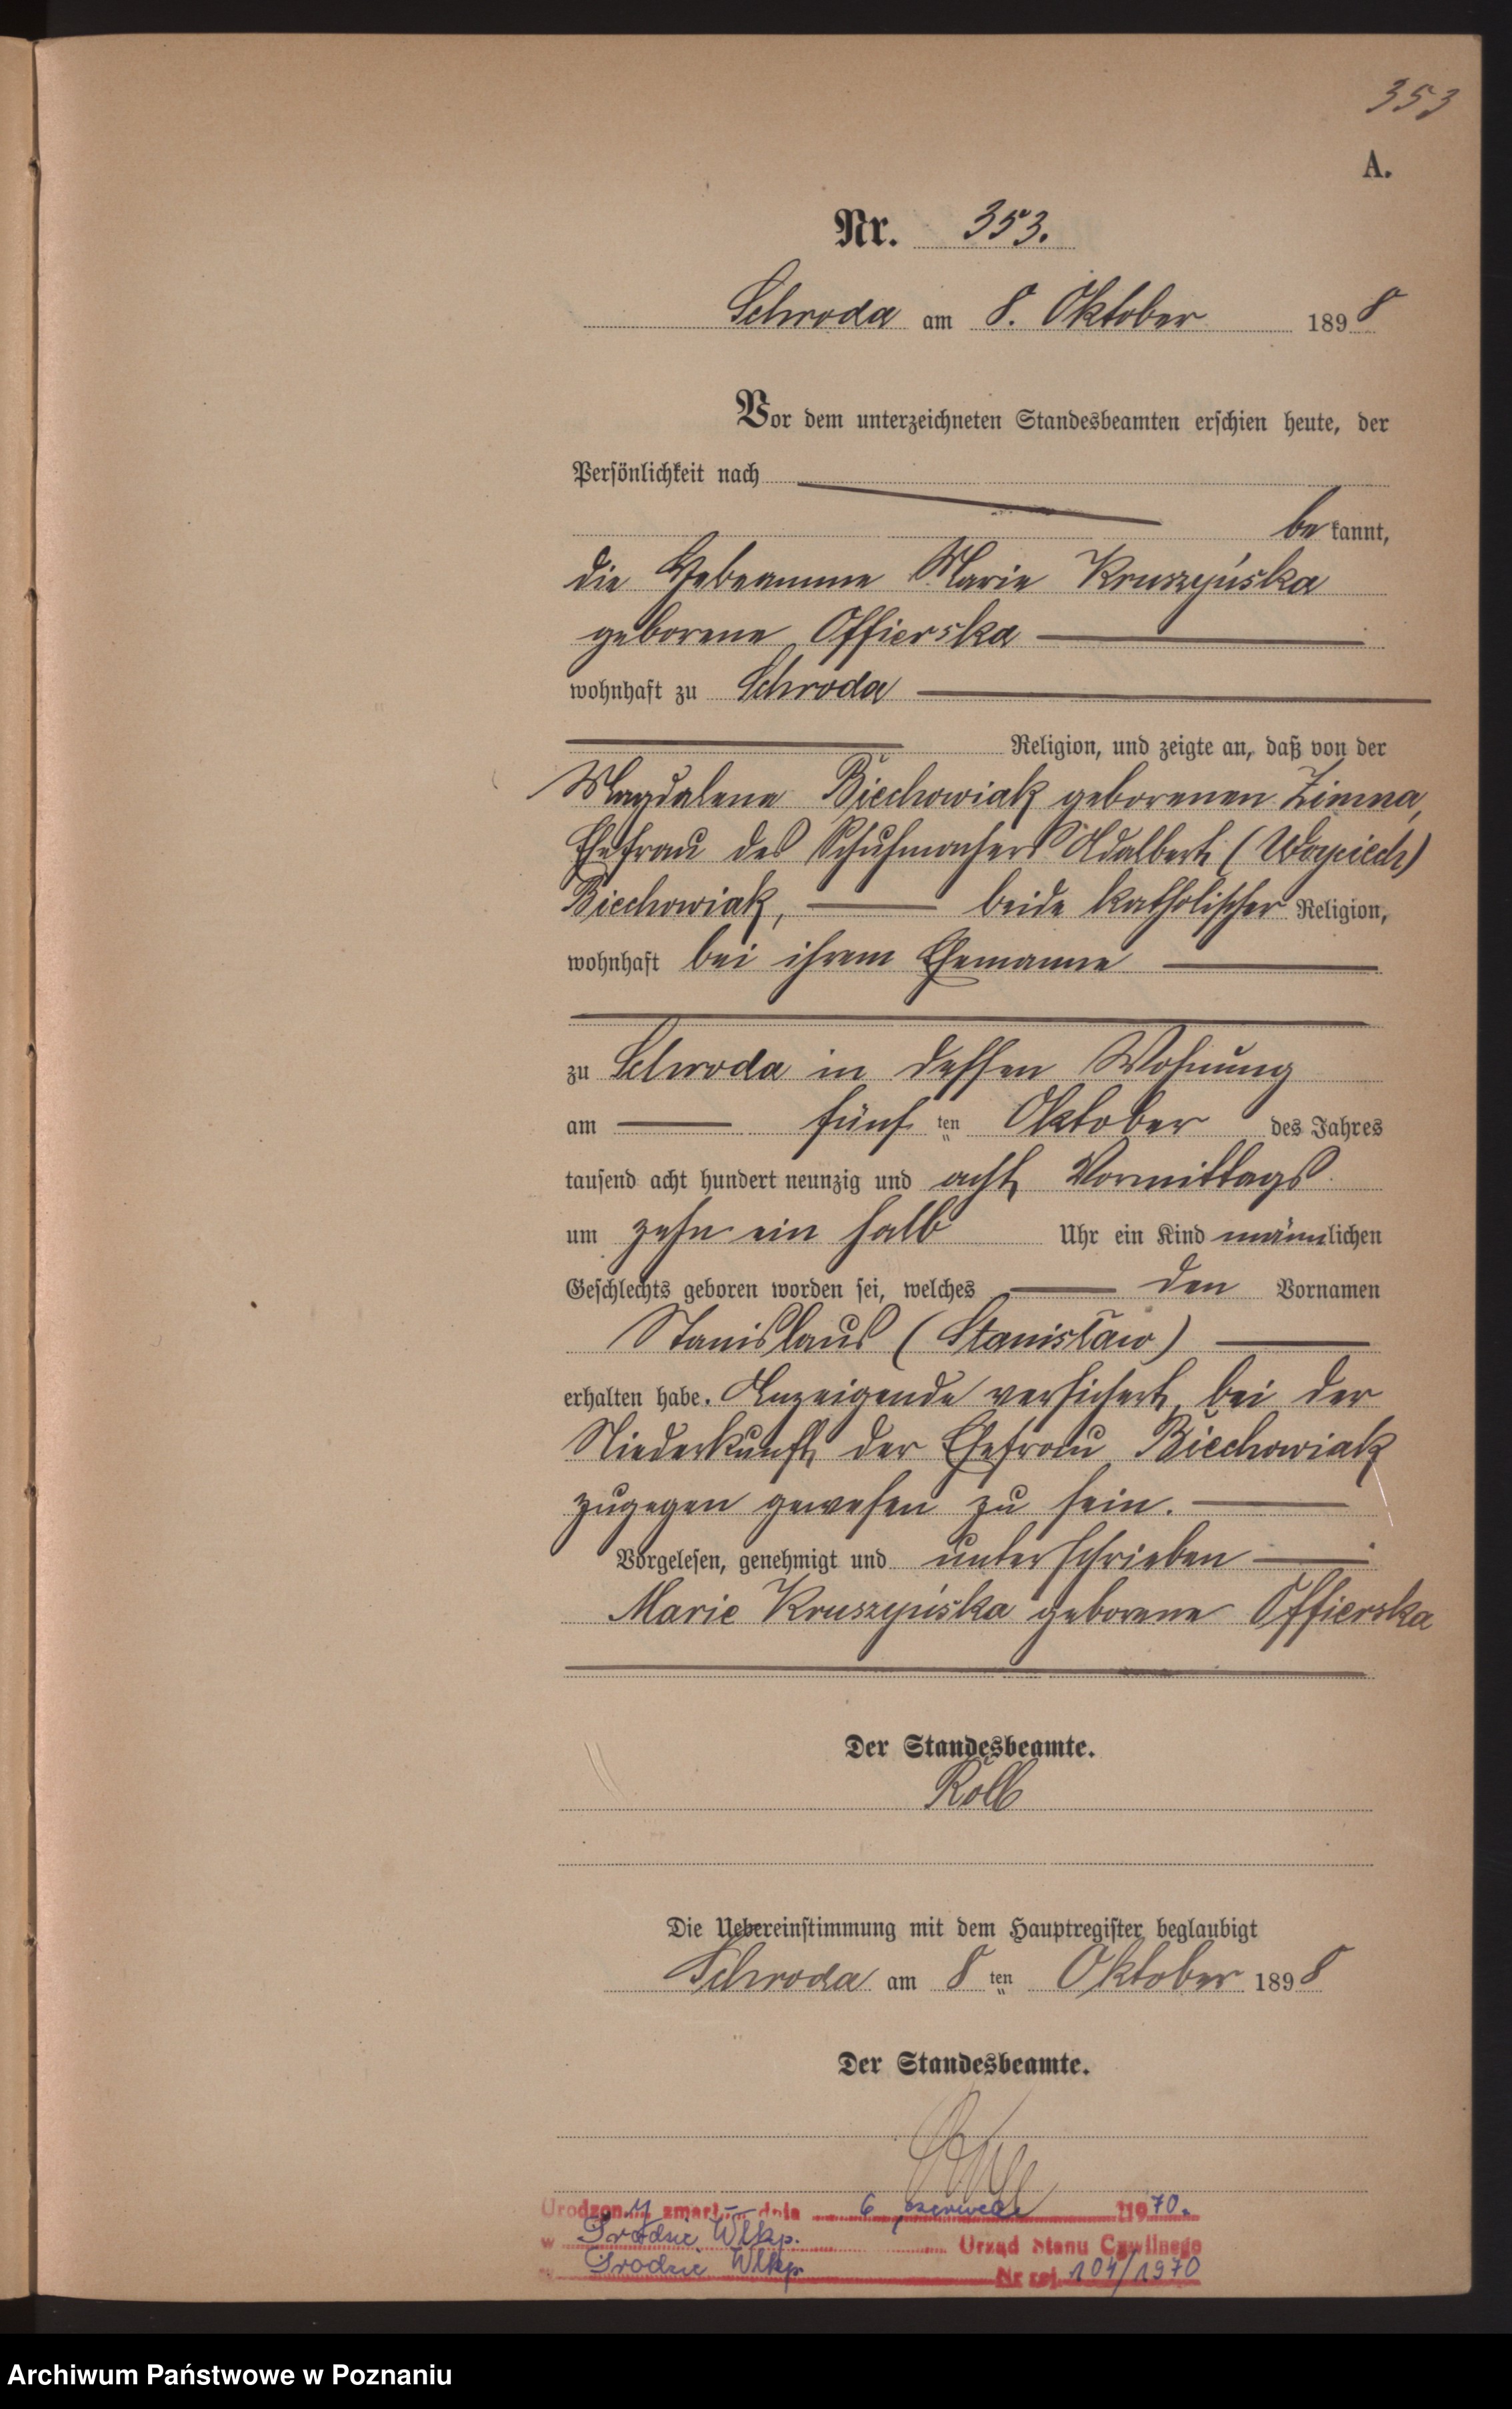 353
A.
Nr. 353.
Schroda am 8. Oktober 1898
Vor dem unterzeichneten Standesbeamten erschien heute, der
Persönlichkeit nach
bekannt,
die Hebeamme Marie Kruszyńska
geborene Offierska
wohnhaft zu Schroda
Religion, und zeigte an, daß von der
Magdalena Biechowiak geborenen Zimna,
Ehefrau des Schuhmachers Adalbert (Woyciech)
Biechowiak, beide katholischer Religion,
wohnhaft bei ihrem Ehemanne
zu Schroda in dessen Wohnung
am fünf ten Oktober des Jahres
tausend acht hundert neunzig und acht Vormittags
um zehn ein halb Uhr ein Kind männlichen
Geschlechts geboren worden sei, welches den Vornamen
Stanislaus (Stanisław)
erhalten habe. Anzeigende versichert, bei der
Niederkunft der Ehefrau Biechowiak
zugegen gewesen zu sein.
Vorgelesen, genehmigt und unterschrieben
Marie Kruszyńska geborene Offierska
Der Standesbeamte.
Kolb
Die Uebereinstimmung mit dem Hauptregister beglaubigt
Schroda am 8 ten Oktober 1898
Der Standesbeamte.
Urodzony zmarł dnia 6 czerwca 1970.
w Środzie Wlkp. Urząd Stanu Cywilnego
Środzie Wlkp Nr rej. 104/1970
Archiwum Państwowe w Poznaniu